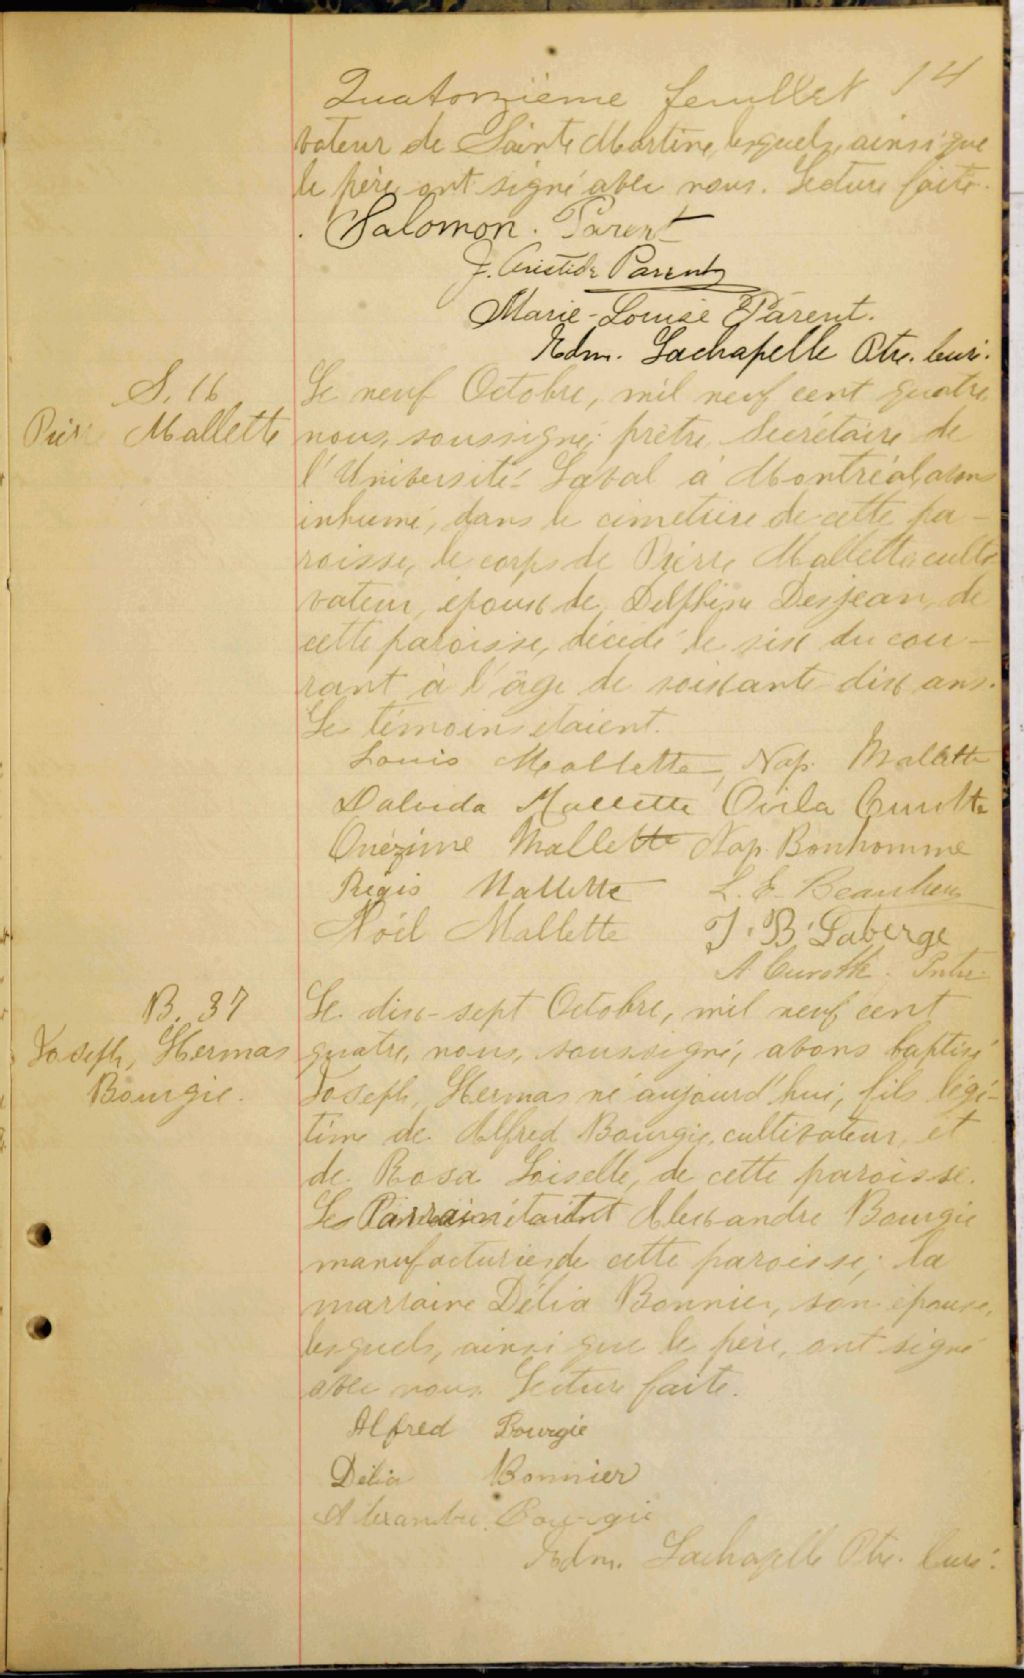 Quatorzième feuillet 14
vateur de Sainte Martine, lesquels, ainsi que
le père, ont signé avec nous. Lecture faite.
Salomon. Parent
J. Aristide Parent
Marie-Louise Parent.
Edm. Lachapelle Ptre. Curé.
S. 16
Pierre Mallette
Le neuf Octobre, mil neuf cent quatre,
nous, soussigné, prêtre, Secrétaire de
l'Université Laval à Montréal, avons
inhumé, dans le cimetière de cette pa-
roisse, le corps de Pierre Mallette, culti
vateur, époux de, Delphine Desjean, de
cette paroisse, décédé le six du cou-
rant à l'âge de soixante-dix ans.
Les témoins étaient.
Louis Mallette, Nap. Mallette
Dalvida Mallette Ovila Curotte
Onézime Mallette Nap. Bonhomme
Régis Mallette L. E. Beaulieu
Noïl Mallette J. B. Laberge
A. Curotte. Prêtre
B. 37
Joseph, Hermas
Bourgie.
Le dix-sept Octobre, mil neuf cent
quatre, nous, soussigné, avons baptisé
Joseph, Hermas né aujourd'hui, fils légi-
time de Alfred Bourgie, cultivateur, et
de Rosa Loiselle, de cette paroisse.
Le Parrain était Alexandre Bourgie
manufacturier de cette paroisse; la
marraine Délia Bonnier, son épouse,
lesquels, ainsi que le père, ont signé
avec nous. Lecture faite.
Alfred Bourgie
Délia Bonnier
Alexandre Bourgie
Edm. Lachapelle Ptre. Curé.